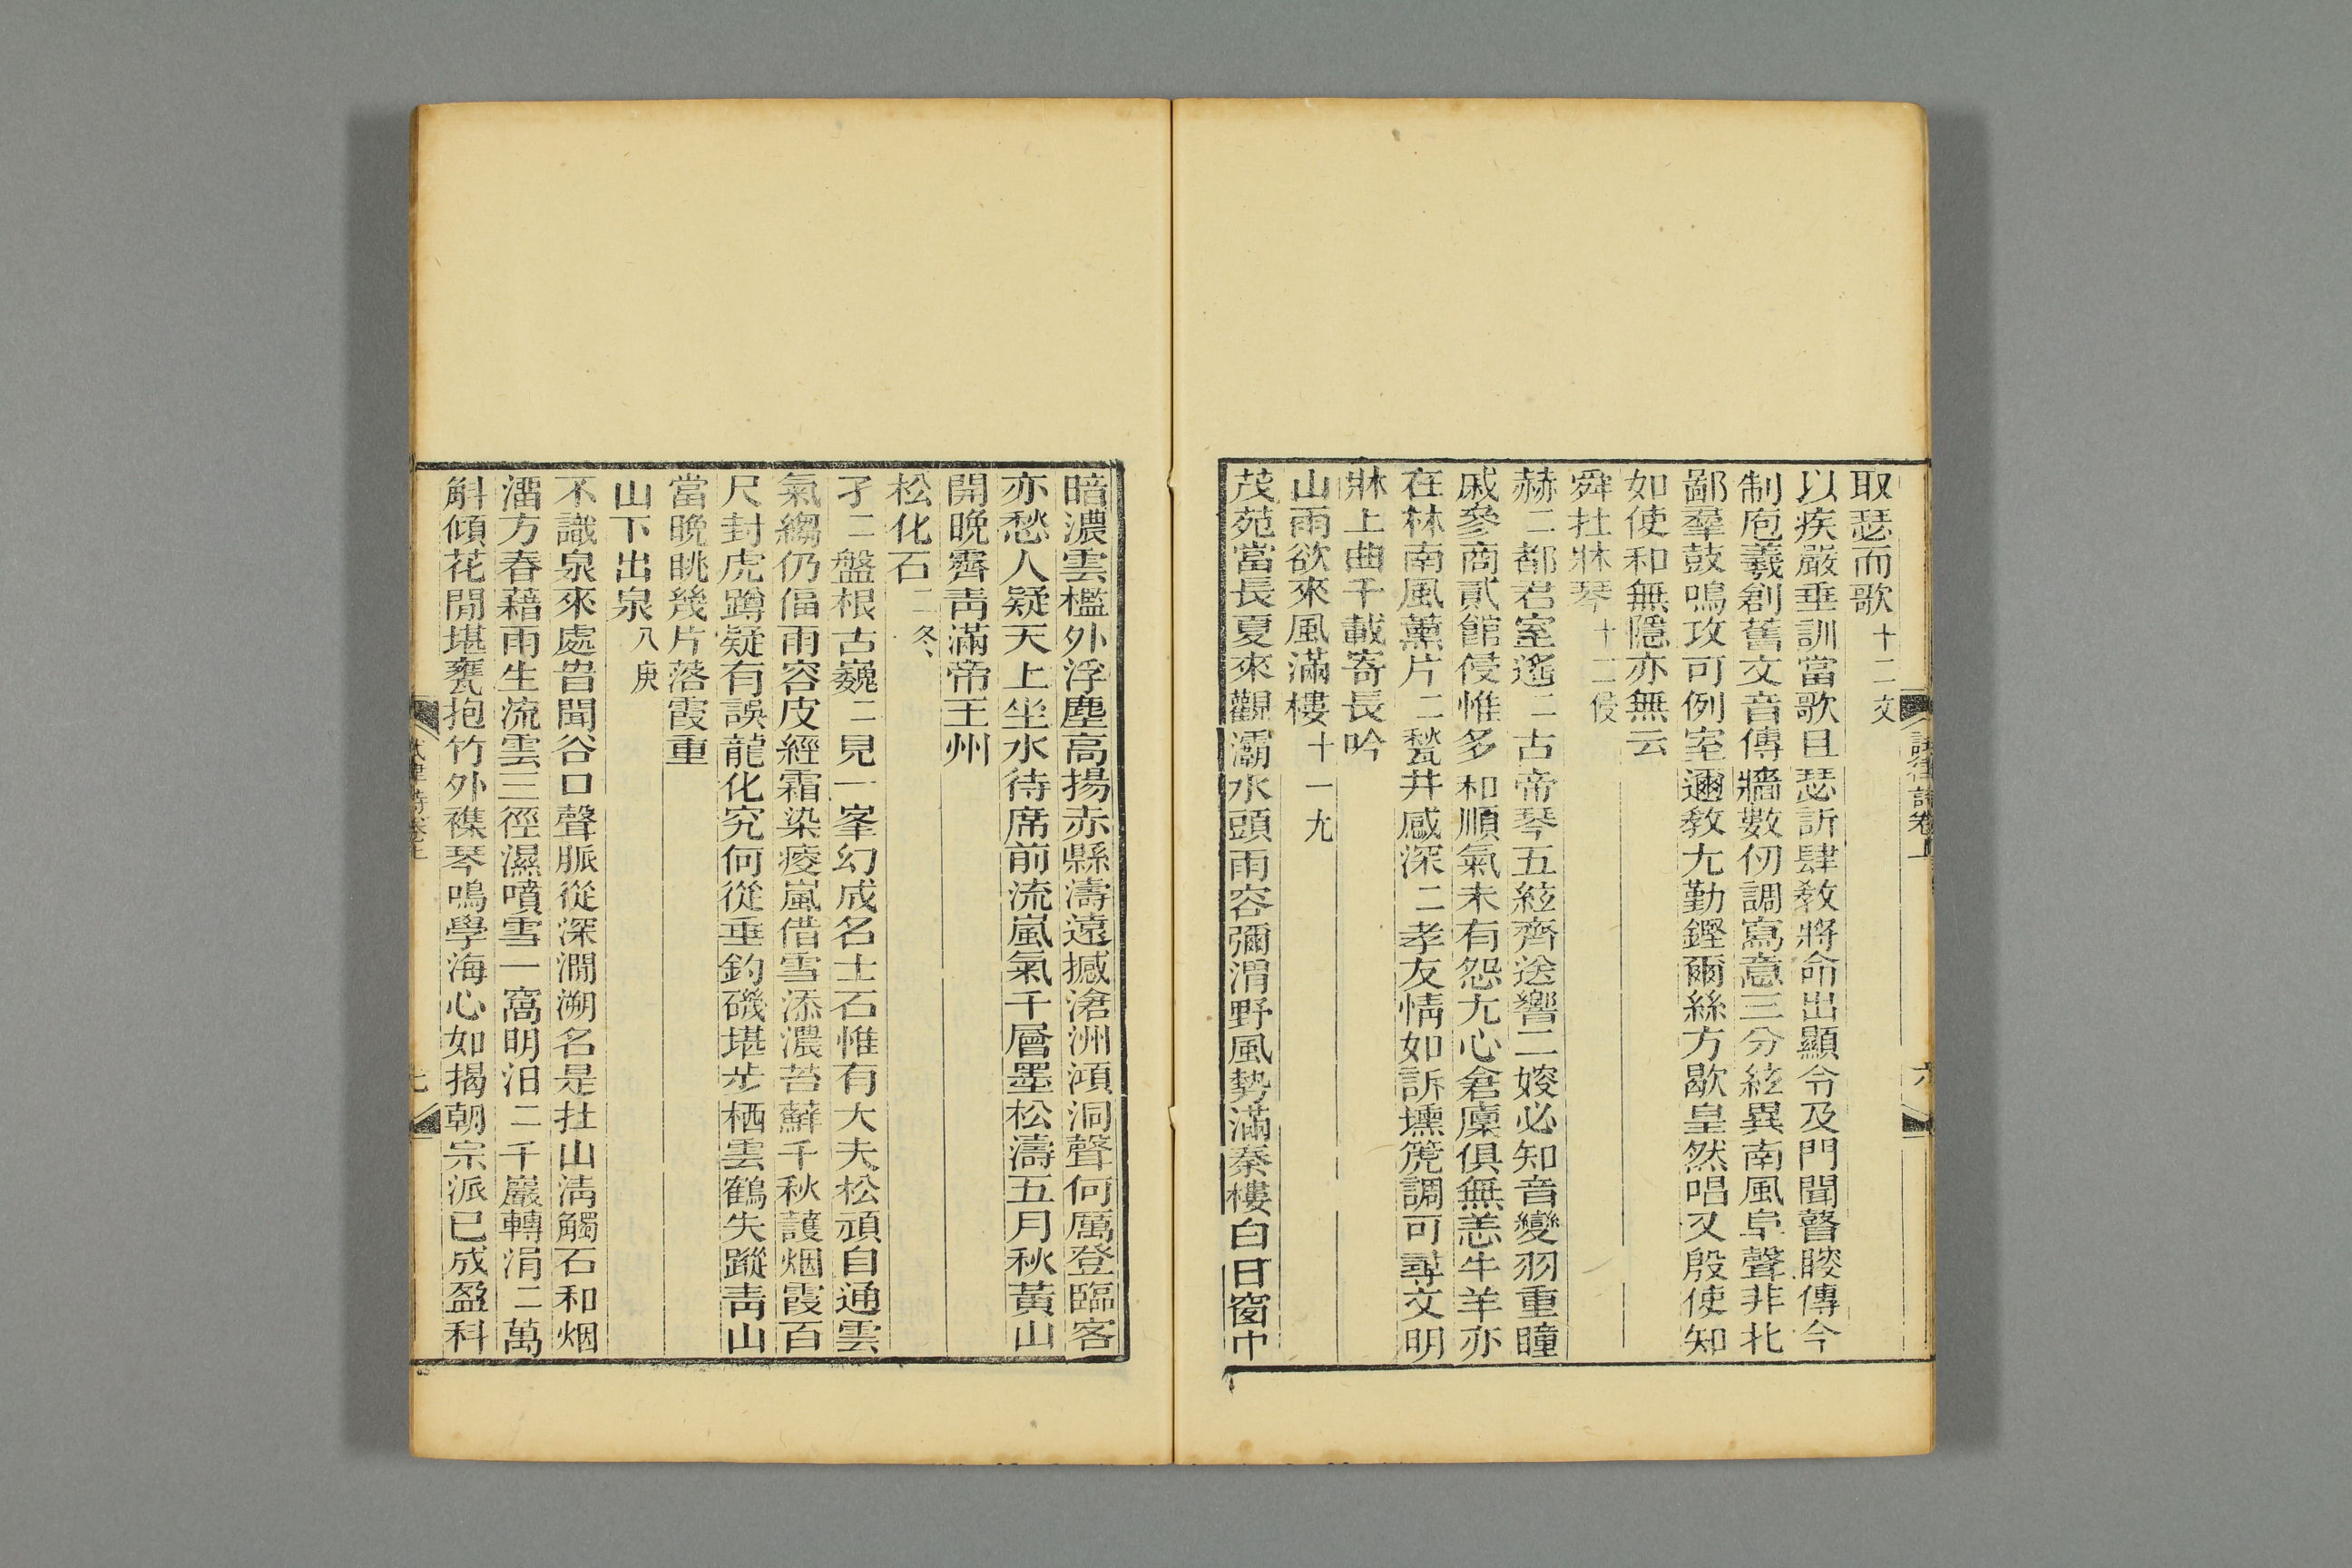 取瑟而歌十二文
以疾嚴垂訓當歌且瑟訢肆教將命出顯令及門聞瞽眹傳今
制庖羲創舊文音傳牆數仞調寫意三分絃異南風阜聲非北
鄙羣鼓鳴攻可例室邇教尢勤鏗爾絲方歇皇然唱又殷使知
如使和無隱亦無云
舜在牀琴十二侵
赫二都君室遙二古帝琴五絃齊送響二嫂必知音變羽重瞳
戚參商貳館侵惟多和順氣未有怨尢心倉廩俱無恙牛羊亦
在林南風薰片二甃井感深二孝友情如訴壎篪調可尋文明
牀上曲千載寄長吟
山雨欲來風滿樓十一尢
茂苑當長夏來觀灞水頭雨容彌渭野風勢滿秦樓白日窗中
暗濃雲檻外浮塵高揚赤縣濤遠撼滄洲澒洞聲何厲登臨客
亦愁人疑天上坐水待席前流嵐氣千層墨松濤五月秋黃山
開晚霽青滿帝王州
松化石二冬
孑二盤根古巍二見一峯幻成名士石惟有大夫松頑自通雲
氣縐仍偪雨容皮經霜染瘦嵐借雪添濃苔蘚千秋護烟霞百
尺封虎蹲疑有誤龍化究何從垂釣磯堪步栖雲鶴失蹤青山
當晚眺幾片落霞重
山下出泉八庚
不識泉來處昔聞谷口聲脈從深澗溯名是在山淸觸石和烟
溜方春藉雨生流雲三徑濕噴雪一窩明汨二千巖轉涓二萬
斛傾花閒堪甕抱竹外襍琴鳴學海心如揭朝宗派已成盈科